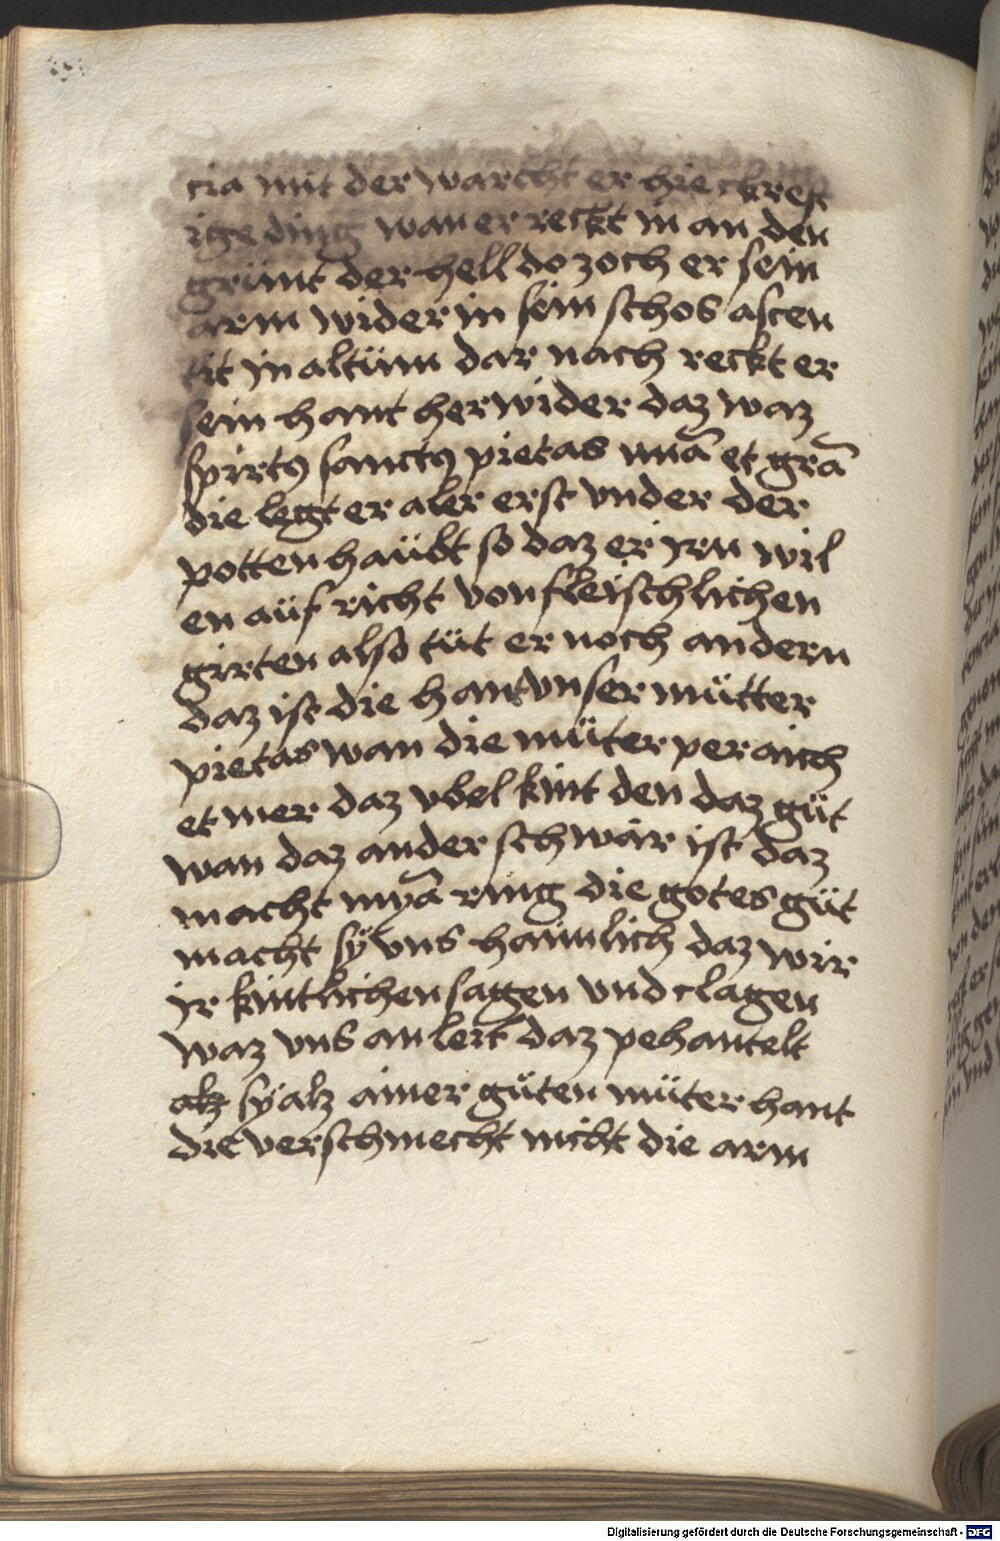 cia mit der warcht er hie ckreft
ige ding wan er reckt in an den
grünt der hell do zoch er sein
arm wider in sein schos ascen
dit in altüm dar nach reckt er
sein hant her wider daz waz
spirtꝰ sanctꝰ pietas mīa et grā
die legt er aler erst vnder der
potten haübt so daz er irn wil
en aüf richt von fleischlichen
girten also tüt er noch andern
daz ist die hant vnser mütter
pietas wan die müter per aich
et mer daz vbel kint den daz güt
wan daz ander schwär ist daz
macht myā ring die gotes güt
macht sÿ vns haimlich daz wir
ir kintlichen sagen vnd clagen
waz vns an leit daz pehantelt
sÿ alz ainer güten müter hant
die verschmecht nicht die arm
Digitalisierung gefördert durch die Deutsche Forschungsgemeinschaft - DFG